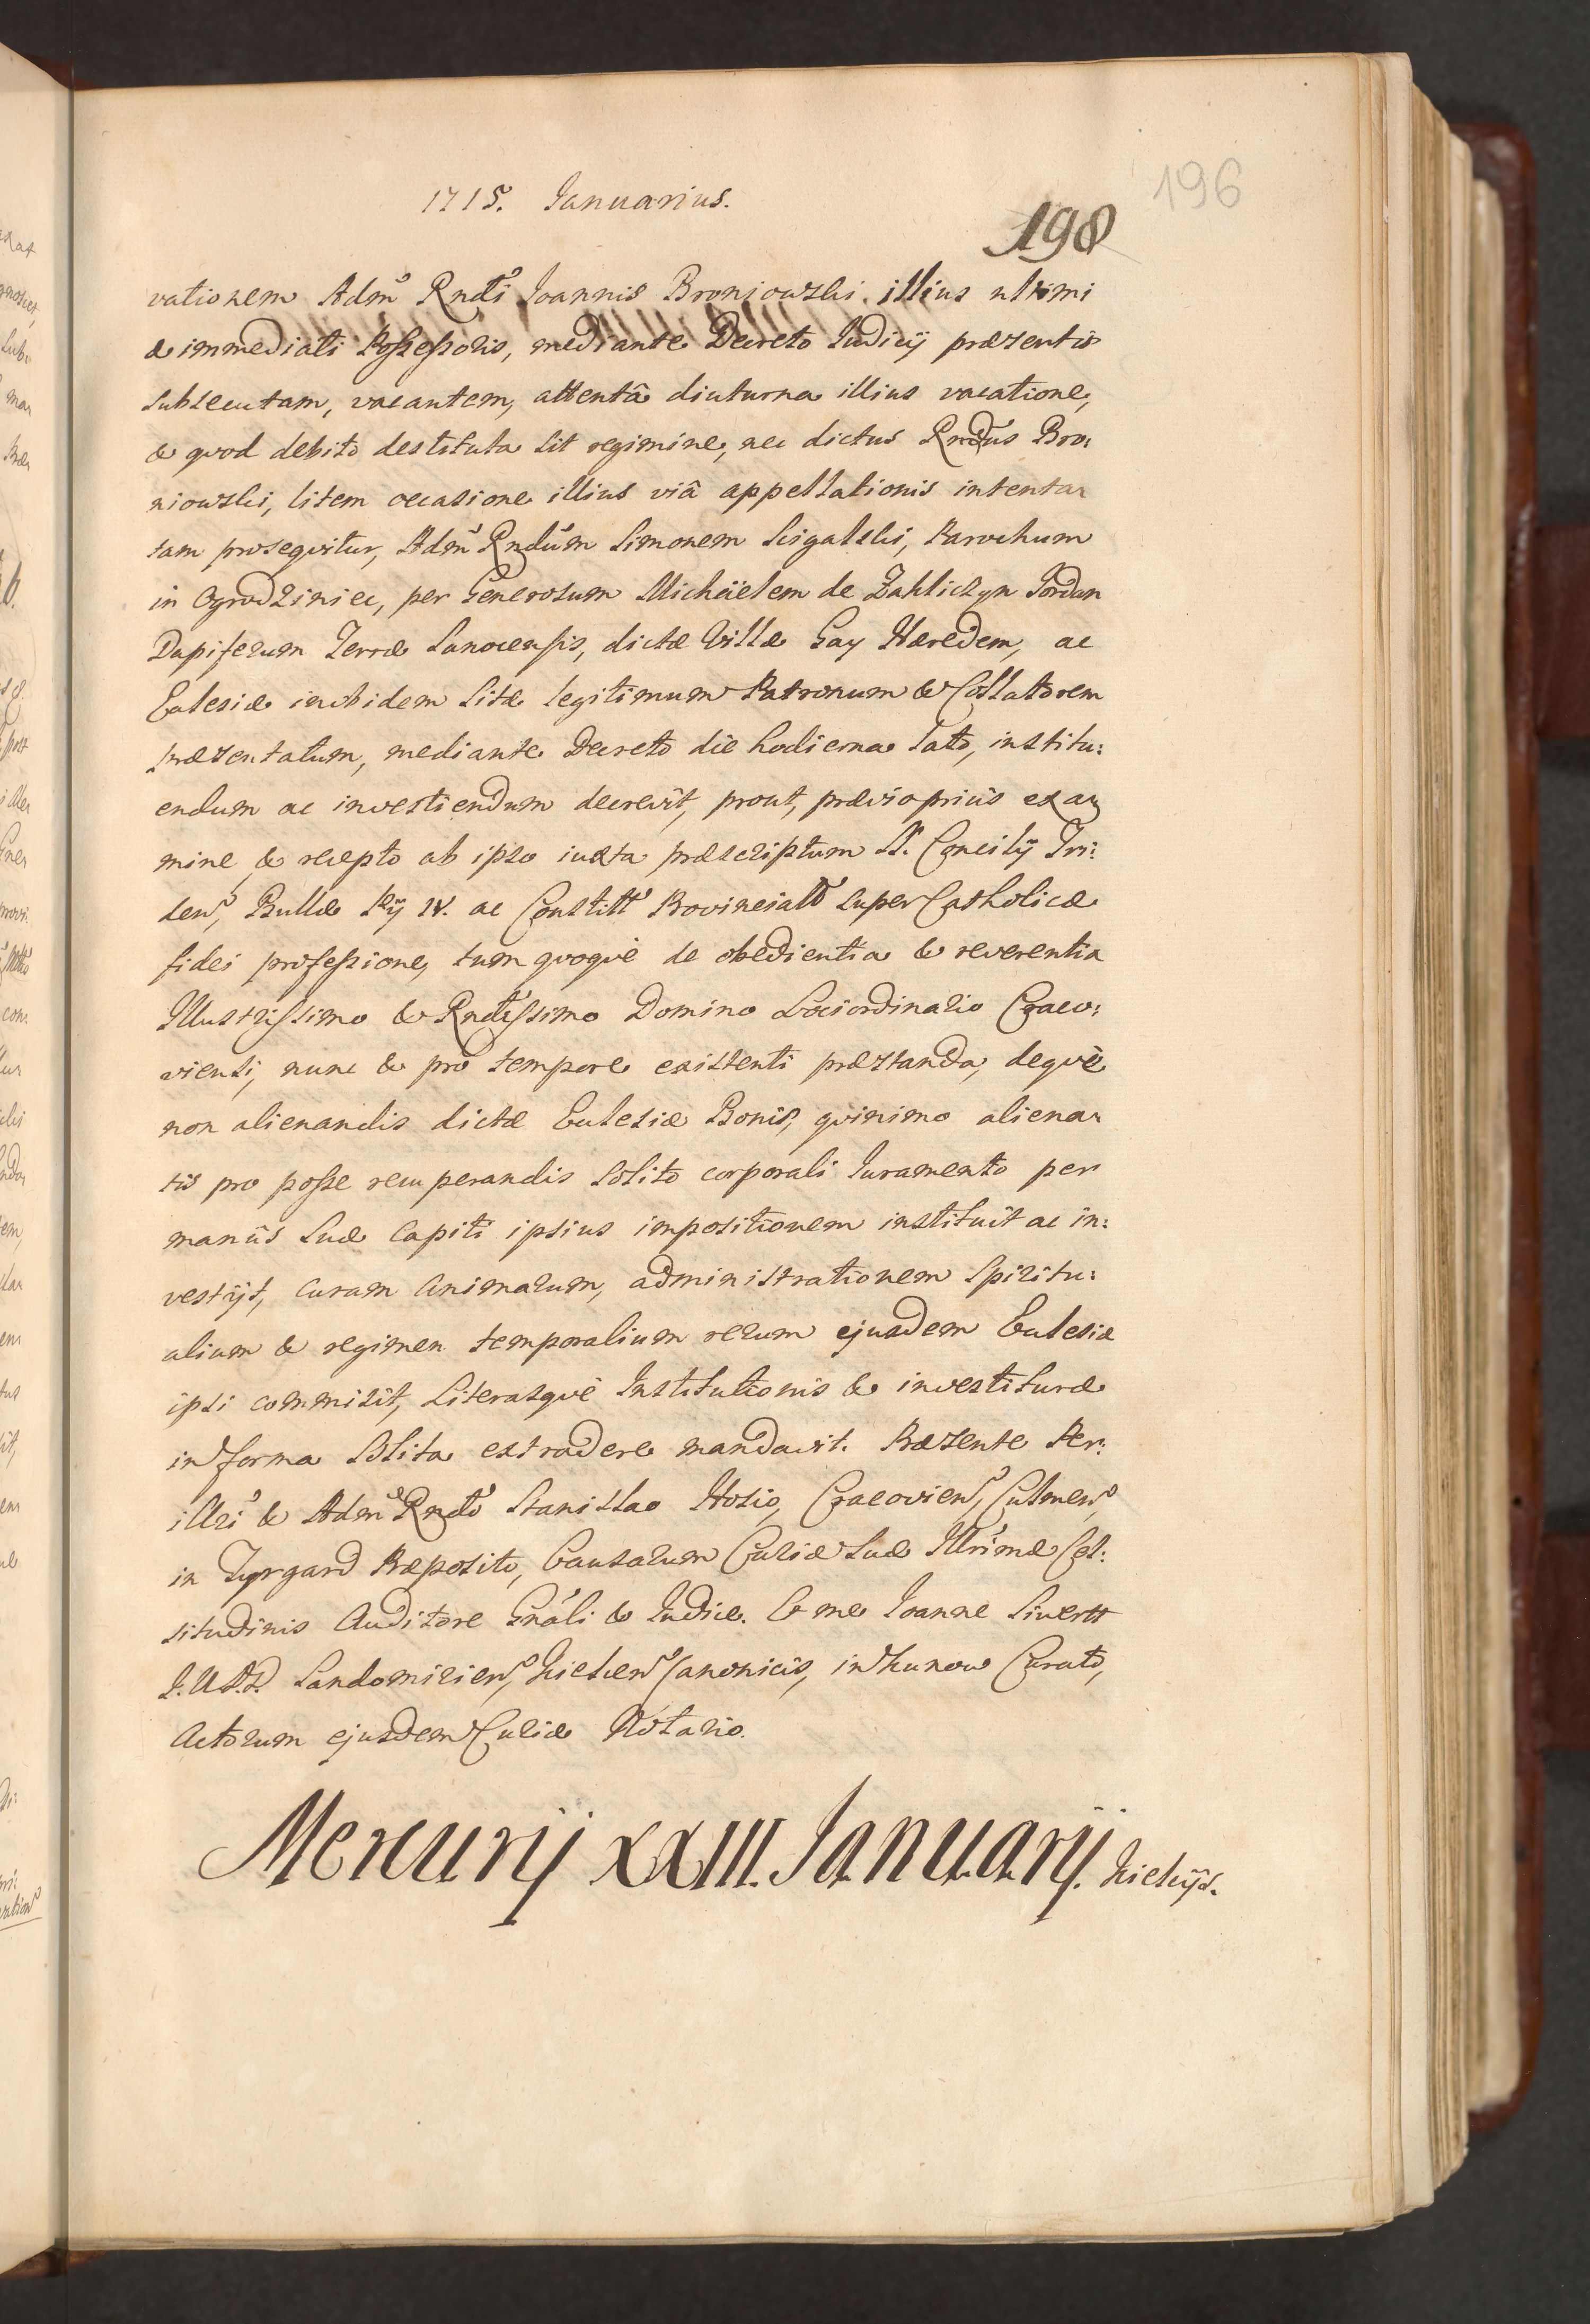 196
1715. Januarius.
198
vationem Adm Rndi Joannis Broniowski illius ultimi
& immediati Possessoris, mediante Decreto Judicij præsentis
subsecutam, vacantem, attentâ diuturna illius vacatione,
& quod debito destituta sit regimine, nec dictus Rndus Bro:
niowski, litem occasione illius viâ appellationis intenta
tam prosequitur, Adm Rndum Simonem Scigalski, Parochum
in Ogrodziniec, per Generosum Michäelem de Zakliczyn Jordan
Dapiferum Terræ Sanocensis, dictæ Villæ Gay Hæredem, ac
Ecclesiæ inibidem sitæ legitimum Patronum & Collatorem
præsentatum, mediante Decreto die hodierna lato, institu:
endum ac investiendum decrevit, prout, prævio prius exa
mine & recepto ab ipso iuxta præscriptum S. Concilij Tri:
den, Bullæ Pij IV. ac Constitt Provinciall super Catholicæ
fidei professione, tum quoquè de obedientia & reverentia
Illustrissimo & Rndissimo Domino Lociordinario Craco:
viensi, nunc & pro tempore existenti præstanda, dequè
non alienandis dictæ Ecclesiæ Bonis, quinimo aliena
tis pro posse recuperandis solito corporali Juramento per
manûs suæ Capiti ipsius impositionem instituit ac in:
vestijt, curam animarum, administrationem spiritu:
alium & regimen temporalium rerum ejusdem Ecclesiæ
ipsi commisit, Literasquè Institutionis & investituræ
in forma solita extradere mandavit. Præsente Per:
illri & Adm Rndo Stanislao Hosio, Cracovien, Culmen,
in Tyrgard Præposito, Causarum Curiæ suæ Illrimæ Cel:
situdinis Auditore Gnali & Judice. & me Joanne Sivertt
J.U.D. Sandomirien, Kielcen Canonicis, in Kunow Curato,
Actorum ejusdem Curiæ Notario.
Mercurij XXIII. Januarij. Kielcijs.